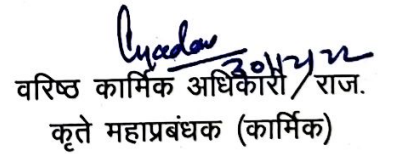 वरिष्ठ कार्मिक अधिकारी/राज.
कृते महाप्रबंधक (कार्मिक)